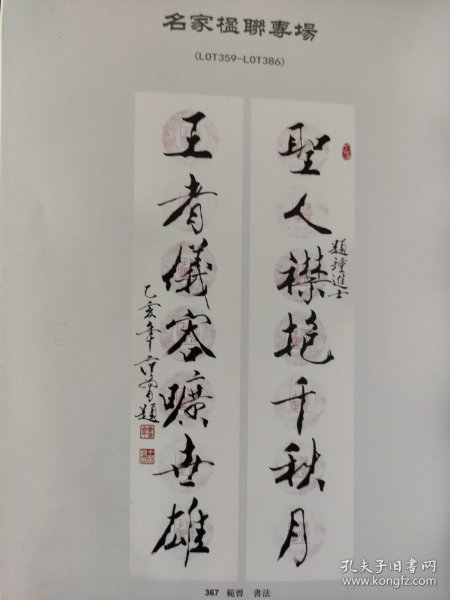 名家楹聯專場
(LOT359-LOT386)
聖人襟抱千秋月
題鍾進士
王者儀容曠世雄
乙亥年 范曾題
367 範曾 書法
孔夫子旧书网
www.kongfz.com